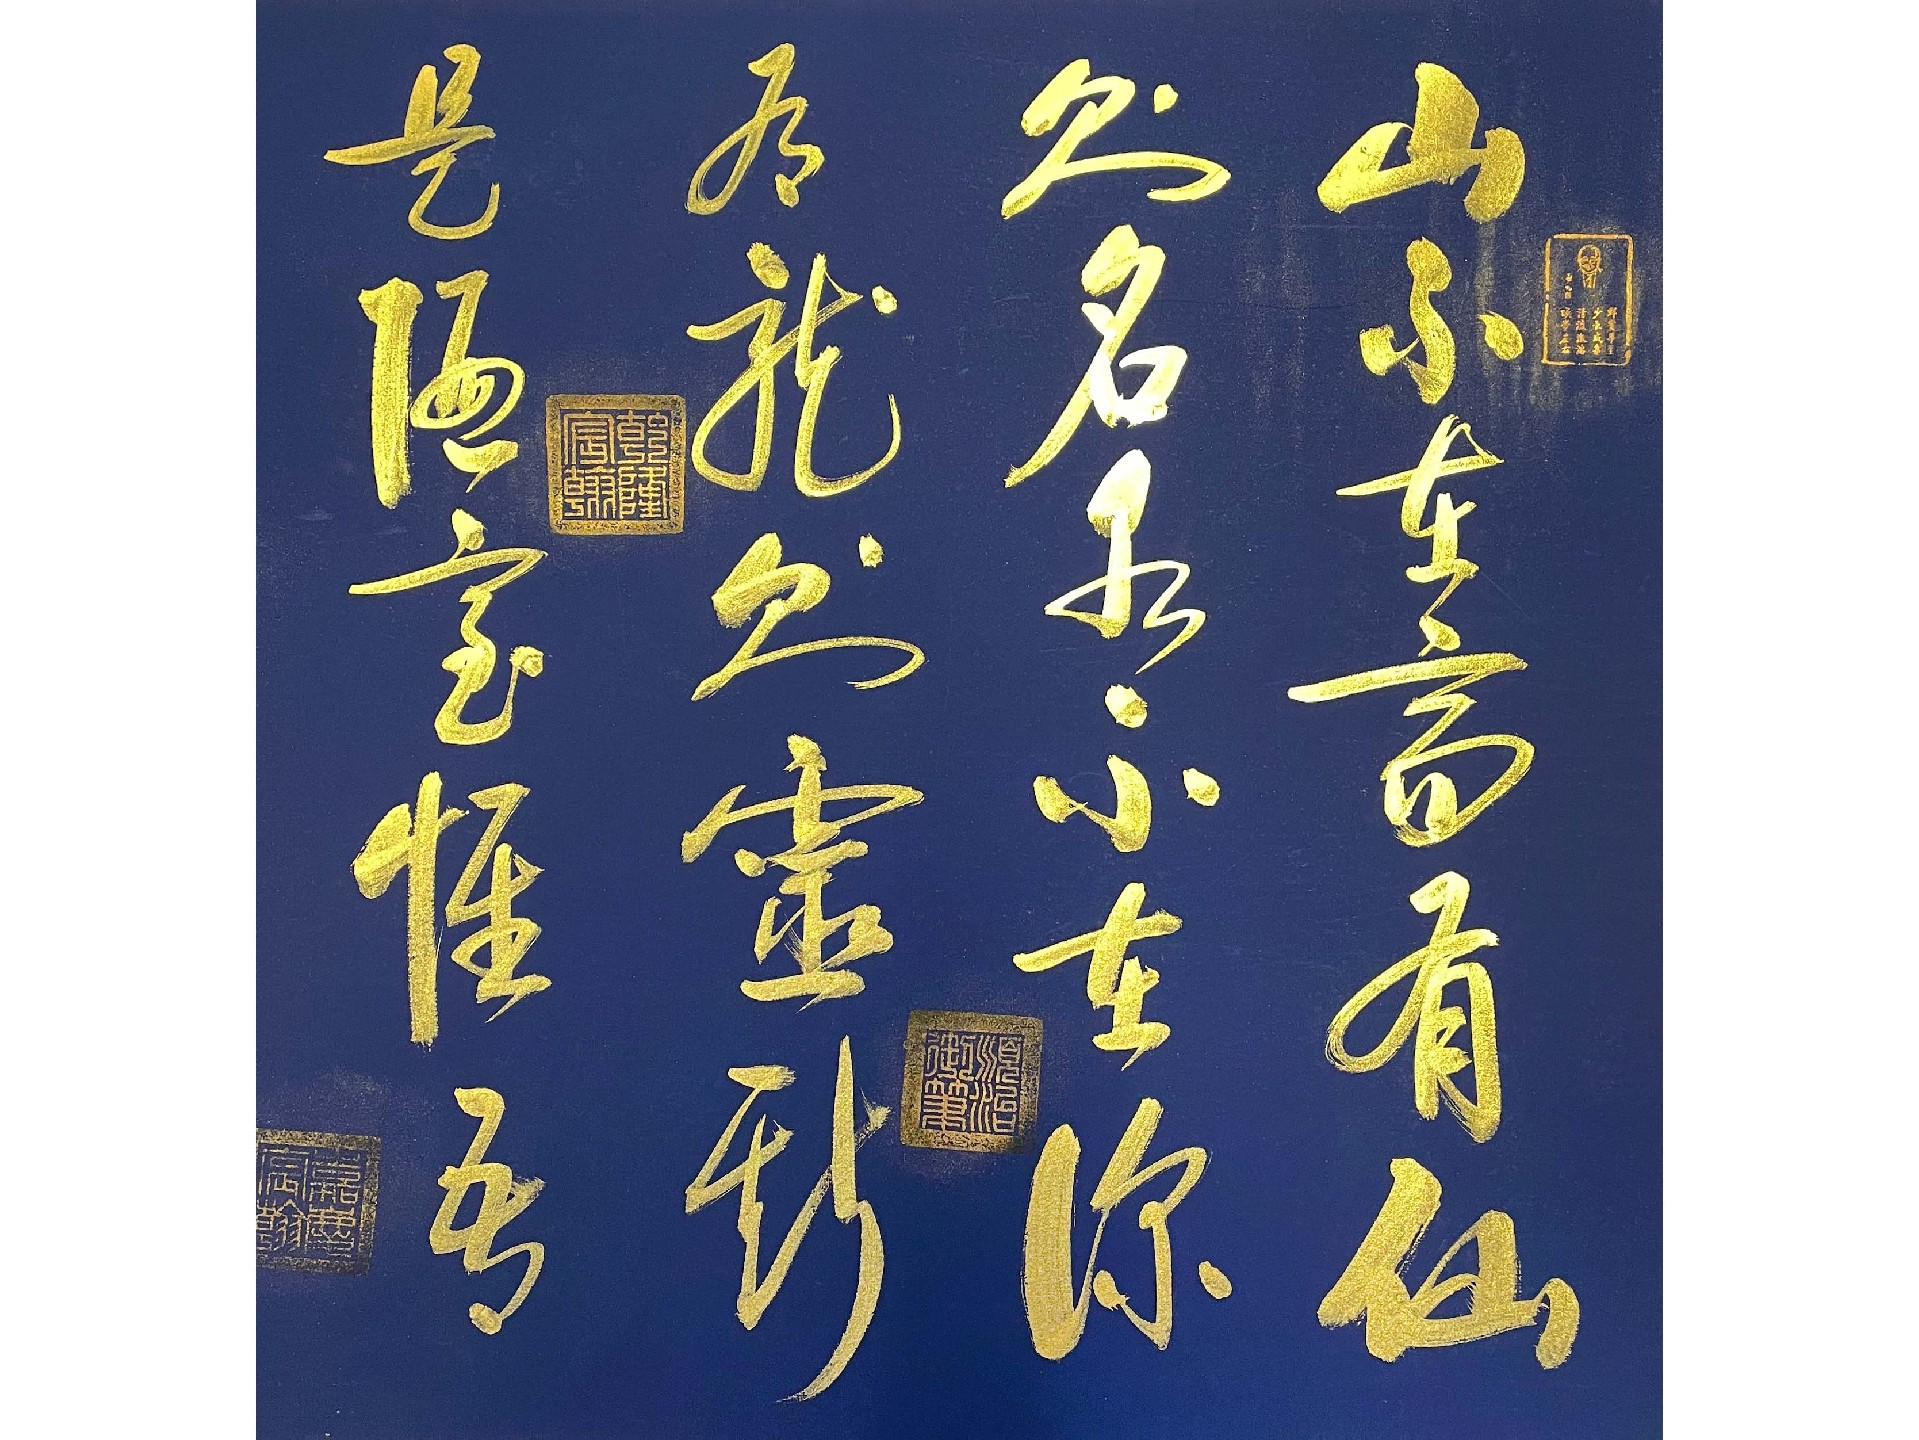 山不在高有仙
則名水不在深
有龍則靈斯
是陋室惟吾
順治御筆
乾隆宸翰
嘉慶宸翰